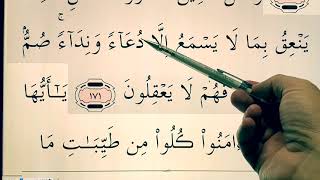 يَنْعِقُ بِمَا لَا يَسْمَعُ إِلَّا دُعَآءً وَنِدَآءً ۚ صُمٌّۢ
فَهُمْ لَا يَعْقِلُونَ ١٧١ يَـٰٓأَيُّهَا
ءَامَنُوا۟ كُلُوا۟ مِن طَيِّبَـٰتِ مَا